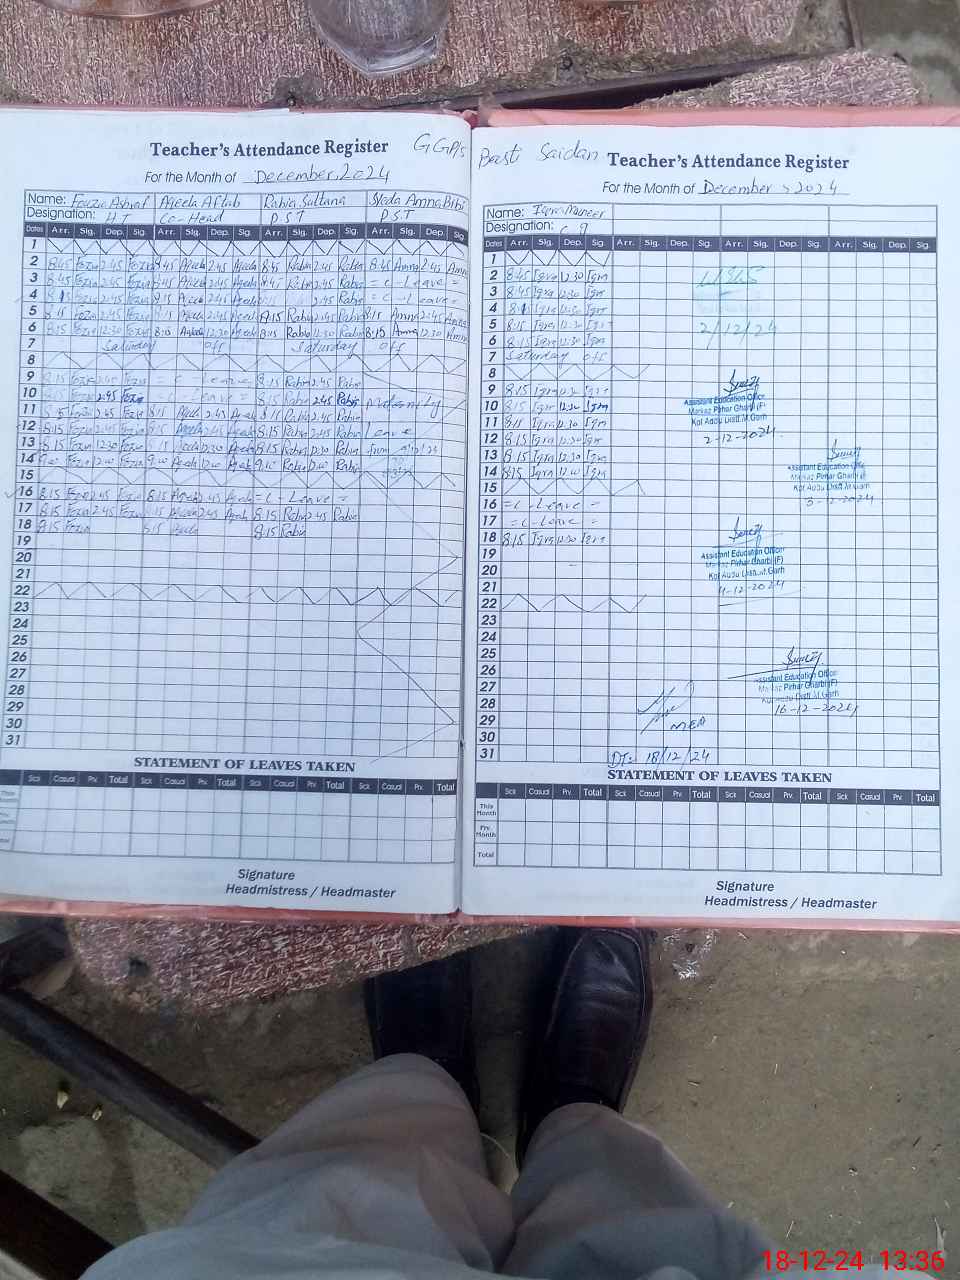 Teacher's Attendance Register GGP/s
For the Month of December, 2024
Name: Fouzia Ashraf Ajeela Aftab Rabia Sultana Syeda Amna Bibi
Designation: HT Co-Head P.ST P.ST
Dates Arr. Sig. Dep. Sig. Arr. Sig. Dep. Sig. Arr. Sig. Dep. Sig. Arr. Sig. Dep. Sig.
1
2 8:45 Fozia 2:45 Fozia 8:45 Ajeela 2:45 Ajeela 8:45 Rabia 2:45 Rabia 8:45 Amna 2:45 Amna
3 8:45 Fozia 2:45 Fozia 8:45 Ajeela 2:45 Ajeela 8:45 Rabia 2:45 Rabia = C - Leave =
4 8:15 Fozia 2:45 Fozia 8:15 Ajeela 2:45 Ajeela 2:45 Rabia = C - Leave =
5 8:15 Fozia 2:45 Fozia 8:15 Ajeela 2:45 Ajeela 8:15 Rabia 2:45 Rabia 8:15 Amna 2:45 Amna
6 8:15 Fozia 12:30 Fozia 8:15 12:30 8:15 Rabia 12:30 Rabia 8:15 Amna 12:30 Amna
7 Saturday off Saturday off
8
9 8:15 Fozia 2:45 Fozia = C - Leave = 8:15 Rabia 2:45 Rabia
10 Fozia 2:45 Fozia = C - Leave = 8:15 Rabia 2:45 Rabia Maternity
11 Fozia 2:45 Fozia 8:15 Ajeela 2:45 Ajeela 8:15 Rabia 2:45 Rabia
12 8:15 Fozia 2:45 Fozia 8:15 Ajeela 2:45 Ajeela 8:15 Rabia 2:45 Rabia Leave
13 8:15 Fozia 12:30 Fozia 8:15 Ajeela 12:30 Ajeela 8:15 Rabia 12:30 Rabia from
14 9:00 Fozia 12:00 Fozia 9:00 Ajeela 12:00 Ajeela 9:00 Rabia 12:00 Rabia
15
16 8:15 Fozia 2:45 Fozia 8:15 Ajeela 2:45 Ajeela = C - Leave =
17 8:15 Fozia 2:45 Fozia 8:15 Ajeela 2:45 Ajeela 8:15 Rabia 2:45 Rabia
18 8:15 Fozia 8:15 Ajeela 8:15 Rabia
19
20
21
22
23
24
25
26
27
28
29
30
31
STATEMENT OF LEAVES TAKEN
Sick Casual Prv. Total Sick Casual Prv. Total Sick Casual Prv. Total Sick Casual Prv. Total
Signature
Headmistress / Headmaster
Basti Saidan Teacher's Attendance Register
For the Month of December, 2024
Name: Iqra Muneer
Designation:
Dates Arr. Sig. Dep. Sig. Arr. Sig. Dep. Sig. Arr. Sig. Dep. Sig. Arr. Sig. Dep. Sig.
1
2 8:45 Iqra 12:30 Iqra
3 8:45 Iqra 12:30 Iqra
4 8:15 Iqra 12:30 Iqra
5 8:15 Iqra 12:30 Iqra 2/12/24
6 8:15 Iqra 12:30 Iqra
7 Saturday off
8
9 8:15 Iqra 12:30 Iqra
10 8:15 Iqra 12:30 Iqra
11 8:15 Iqra 12:30 Iqra
12 8:15 Iqra 12:30 Iqra
13 8:15 Iqra 12:30 Iqra
14 8:15 Iqra 12:00 Iqra
15
16 = C - Leave =
17 = C - Leave =
18 8:15 Iqra 12:30 Iqra
19
20
21
22
23
24
25
26
27
28
29
30
31
Assistant Education Officer
Markaz Pirhar Gharbi (F)
Kot Addu Distt.M.Garh
2-12-2024
Assistant Education Office
Markaz Pirhar Gharbi (F)
Kot Addu Distt.M.Garh
3-12-2024
Assistant Education Officer
Markaz Pirhar Gharbi (F)
Kot Addu Distt.M.Garh
4-12-2024
Assistant Education Officer
Markaz Pirhar Gharbi (F)
Kot Addu Distt.M.Garh
16-12-2024
MEA
DT:- 18/12/24
STATEMENT OF LEAVES TAKEN
Sick Casual Prv. Total Sick Casual Prv. Total Sick Casual Prv. Total Sick Casual Prv. Total
This Month
Prv. Month
Total
Signature
Headmistress / Headmaster
18-12-24 13:36